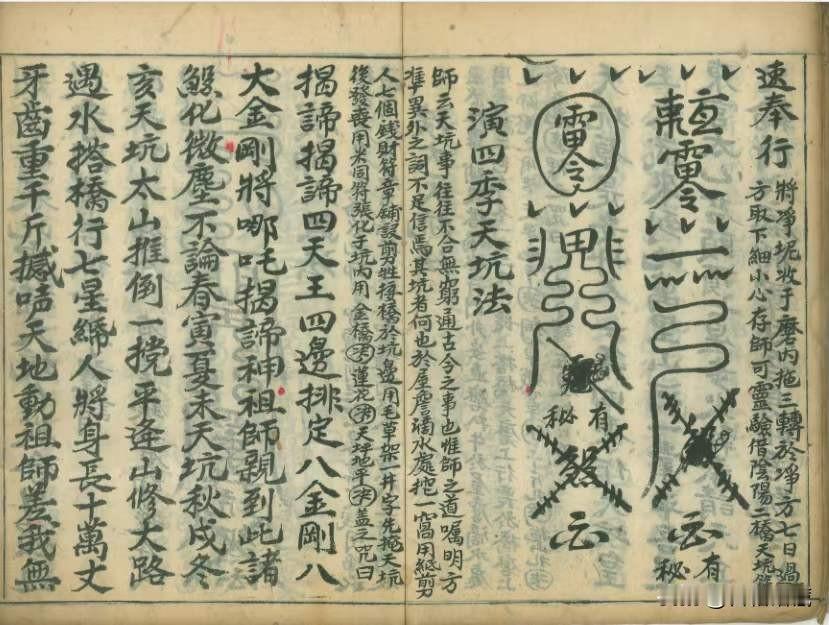 速奉行
將凈坭收于磨內拖三轉於凈方七日過
方取下細小心存師可靈驗借陰陽二橋天坑
雷令
有
秘
雷令
有
秘
演四季天坑法
師云天坑事往往不合無窮通古今之事也惟師之道嘱明方
隼異外之詞不足信焉其坑者何也於屋簷滴水處挖一窩用紙剪
人七個錢財符章鋪設剪牲搭橋於坑邊用毛草架一井字先掩天坑
後發喪用木囯符張化于坑內用 金橋 蓮花 天坑地平 蓋之咒曰
揭諦揭諦四天王四邊排定八金剛八
大金剛將哪吒揭諦神祖師親到此諸
煞化微塵不論春寅夏未天坑秋戌冬
亥天坑太山推倒一撹平逢山修大路
遇水搭橋行七星締人將身長十萬丈
牙齒重千斤撼啼天地動祖師差我無